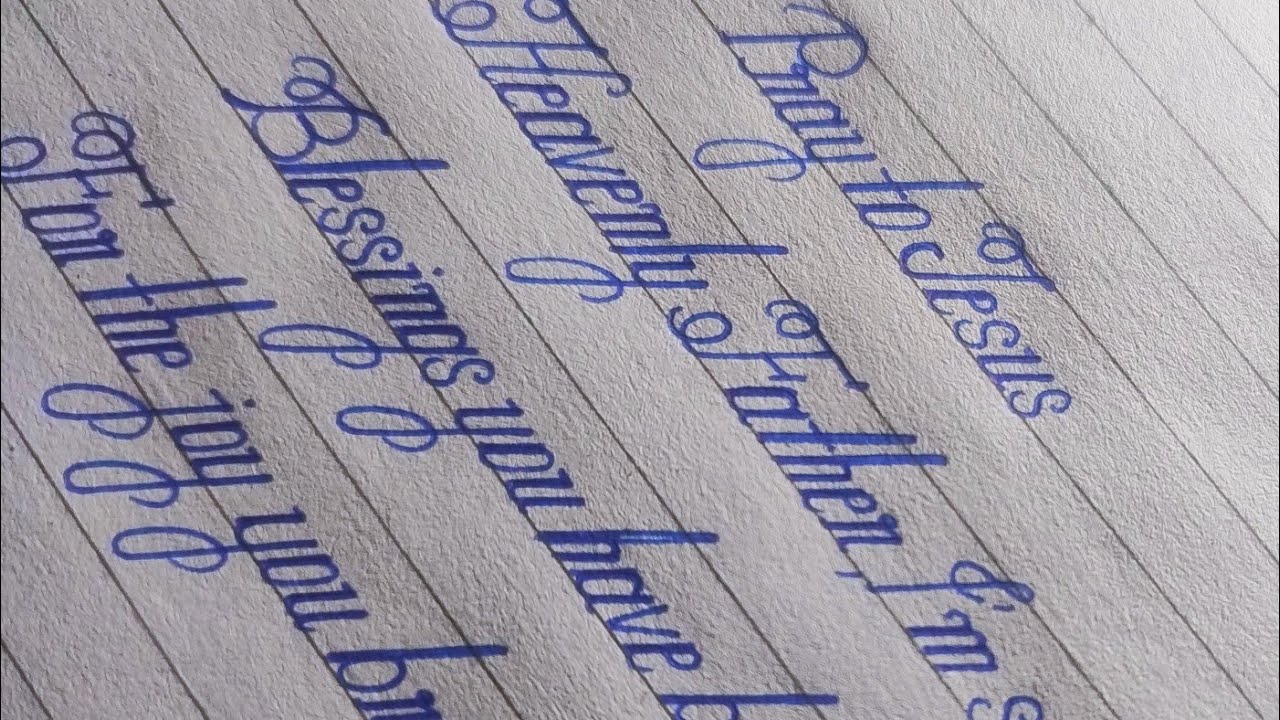 Pray to Jesus
Heavenly Father, I'm
Blessings you have
For the joy you